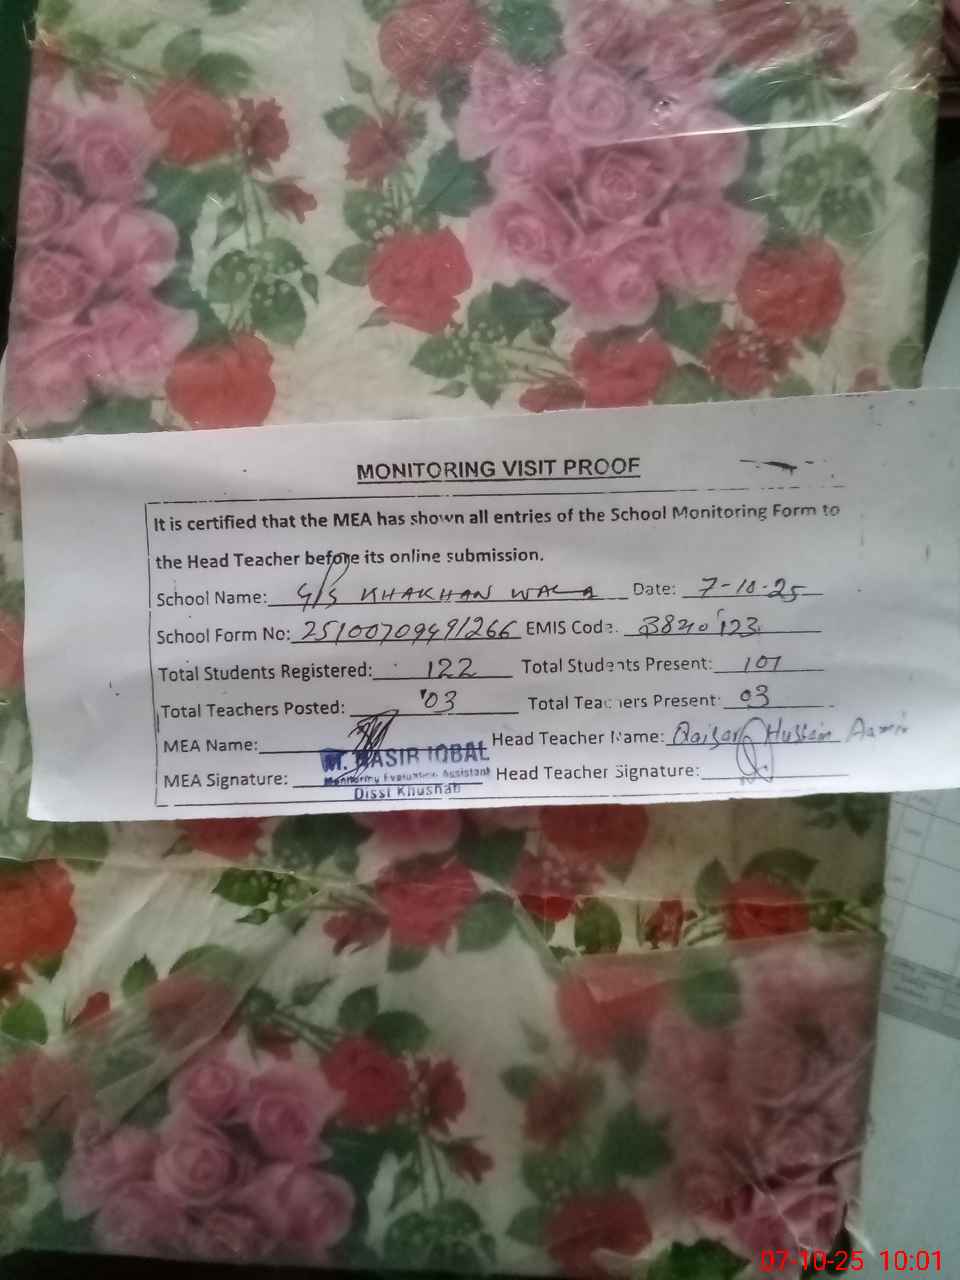 MONITORING VISIT PROOF
It is certified that the MEA has shown all entries of the School Monitoring Form to
the Head Teacher before its online submission.
School Name: G/S KHAKHAN WALA Date: 7-10-25
School Form No: 25100709491266 EMIS Code. 38240123
Total Students Registered: 122 Total Students Present: 101
Total Teachers Posted: 03 Total Teachers Present: 03
MEA Name: Head Teacher Name: Qaisar Hussain
MEA Signature: Head Teacher Signature:
M. NASIR IQBAL
Monitoring Evaluation Assistant
Disst Khushab
07-10-25 10:01